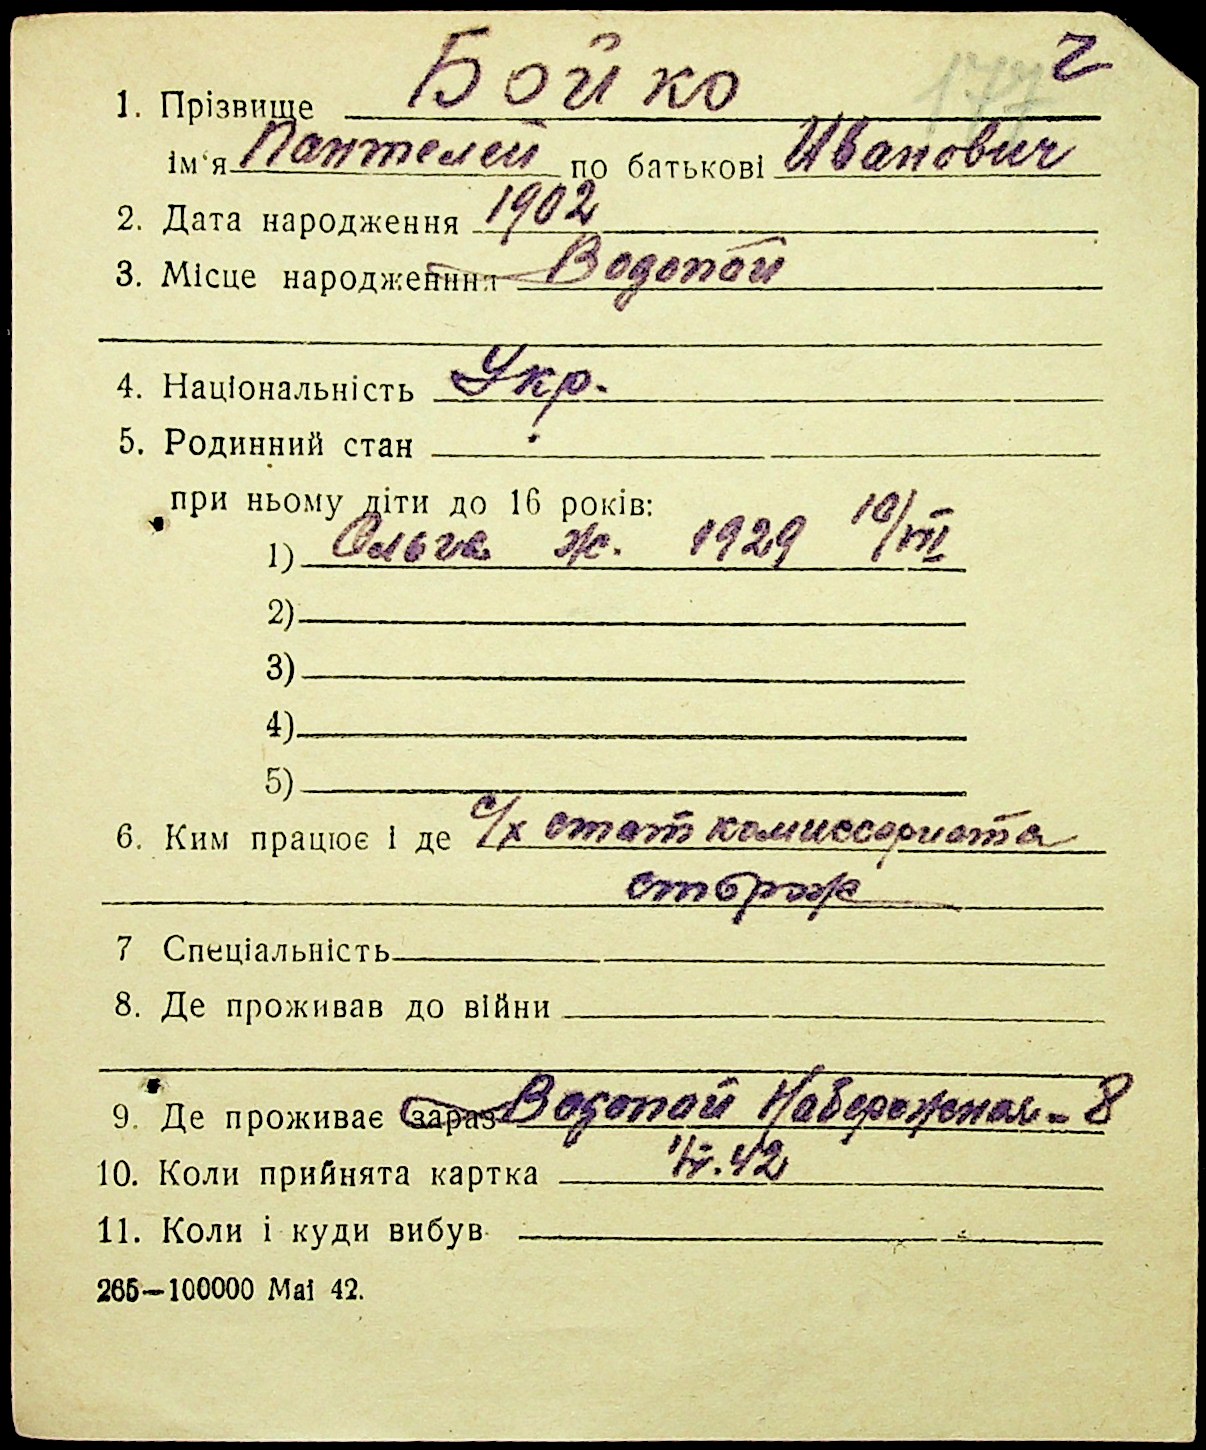 177 г
1. Прізвище Бойко
ім'я Пантелей по батькові Иванович
2. Дата народження 1902
3. Місце народження Водопой
4. Національність Укр.
5. Родинний стан
при ньому діти до 16 років:
1) Ольга ж. 1929 10/VII
2)
3)
4)
5)
6. Ким працює і де с/х штат комиссариата
сторож
7 Спеціальність
8. Де проживав до війни
9. Де проживає зараз Водопой Набережная - 8
10. Коли прийнята картка 42
11. Коли і куди вибув
265—100000 Mai 42.